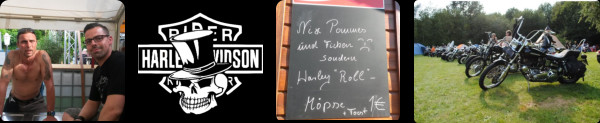 RIDER
HARLEY DAVIDSON
Nix Pommes
und
sondern
Harley "Roll"-
Möpse 1€
+ Toast